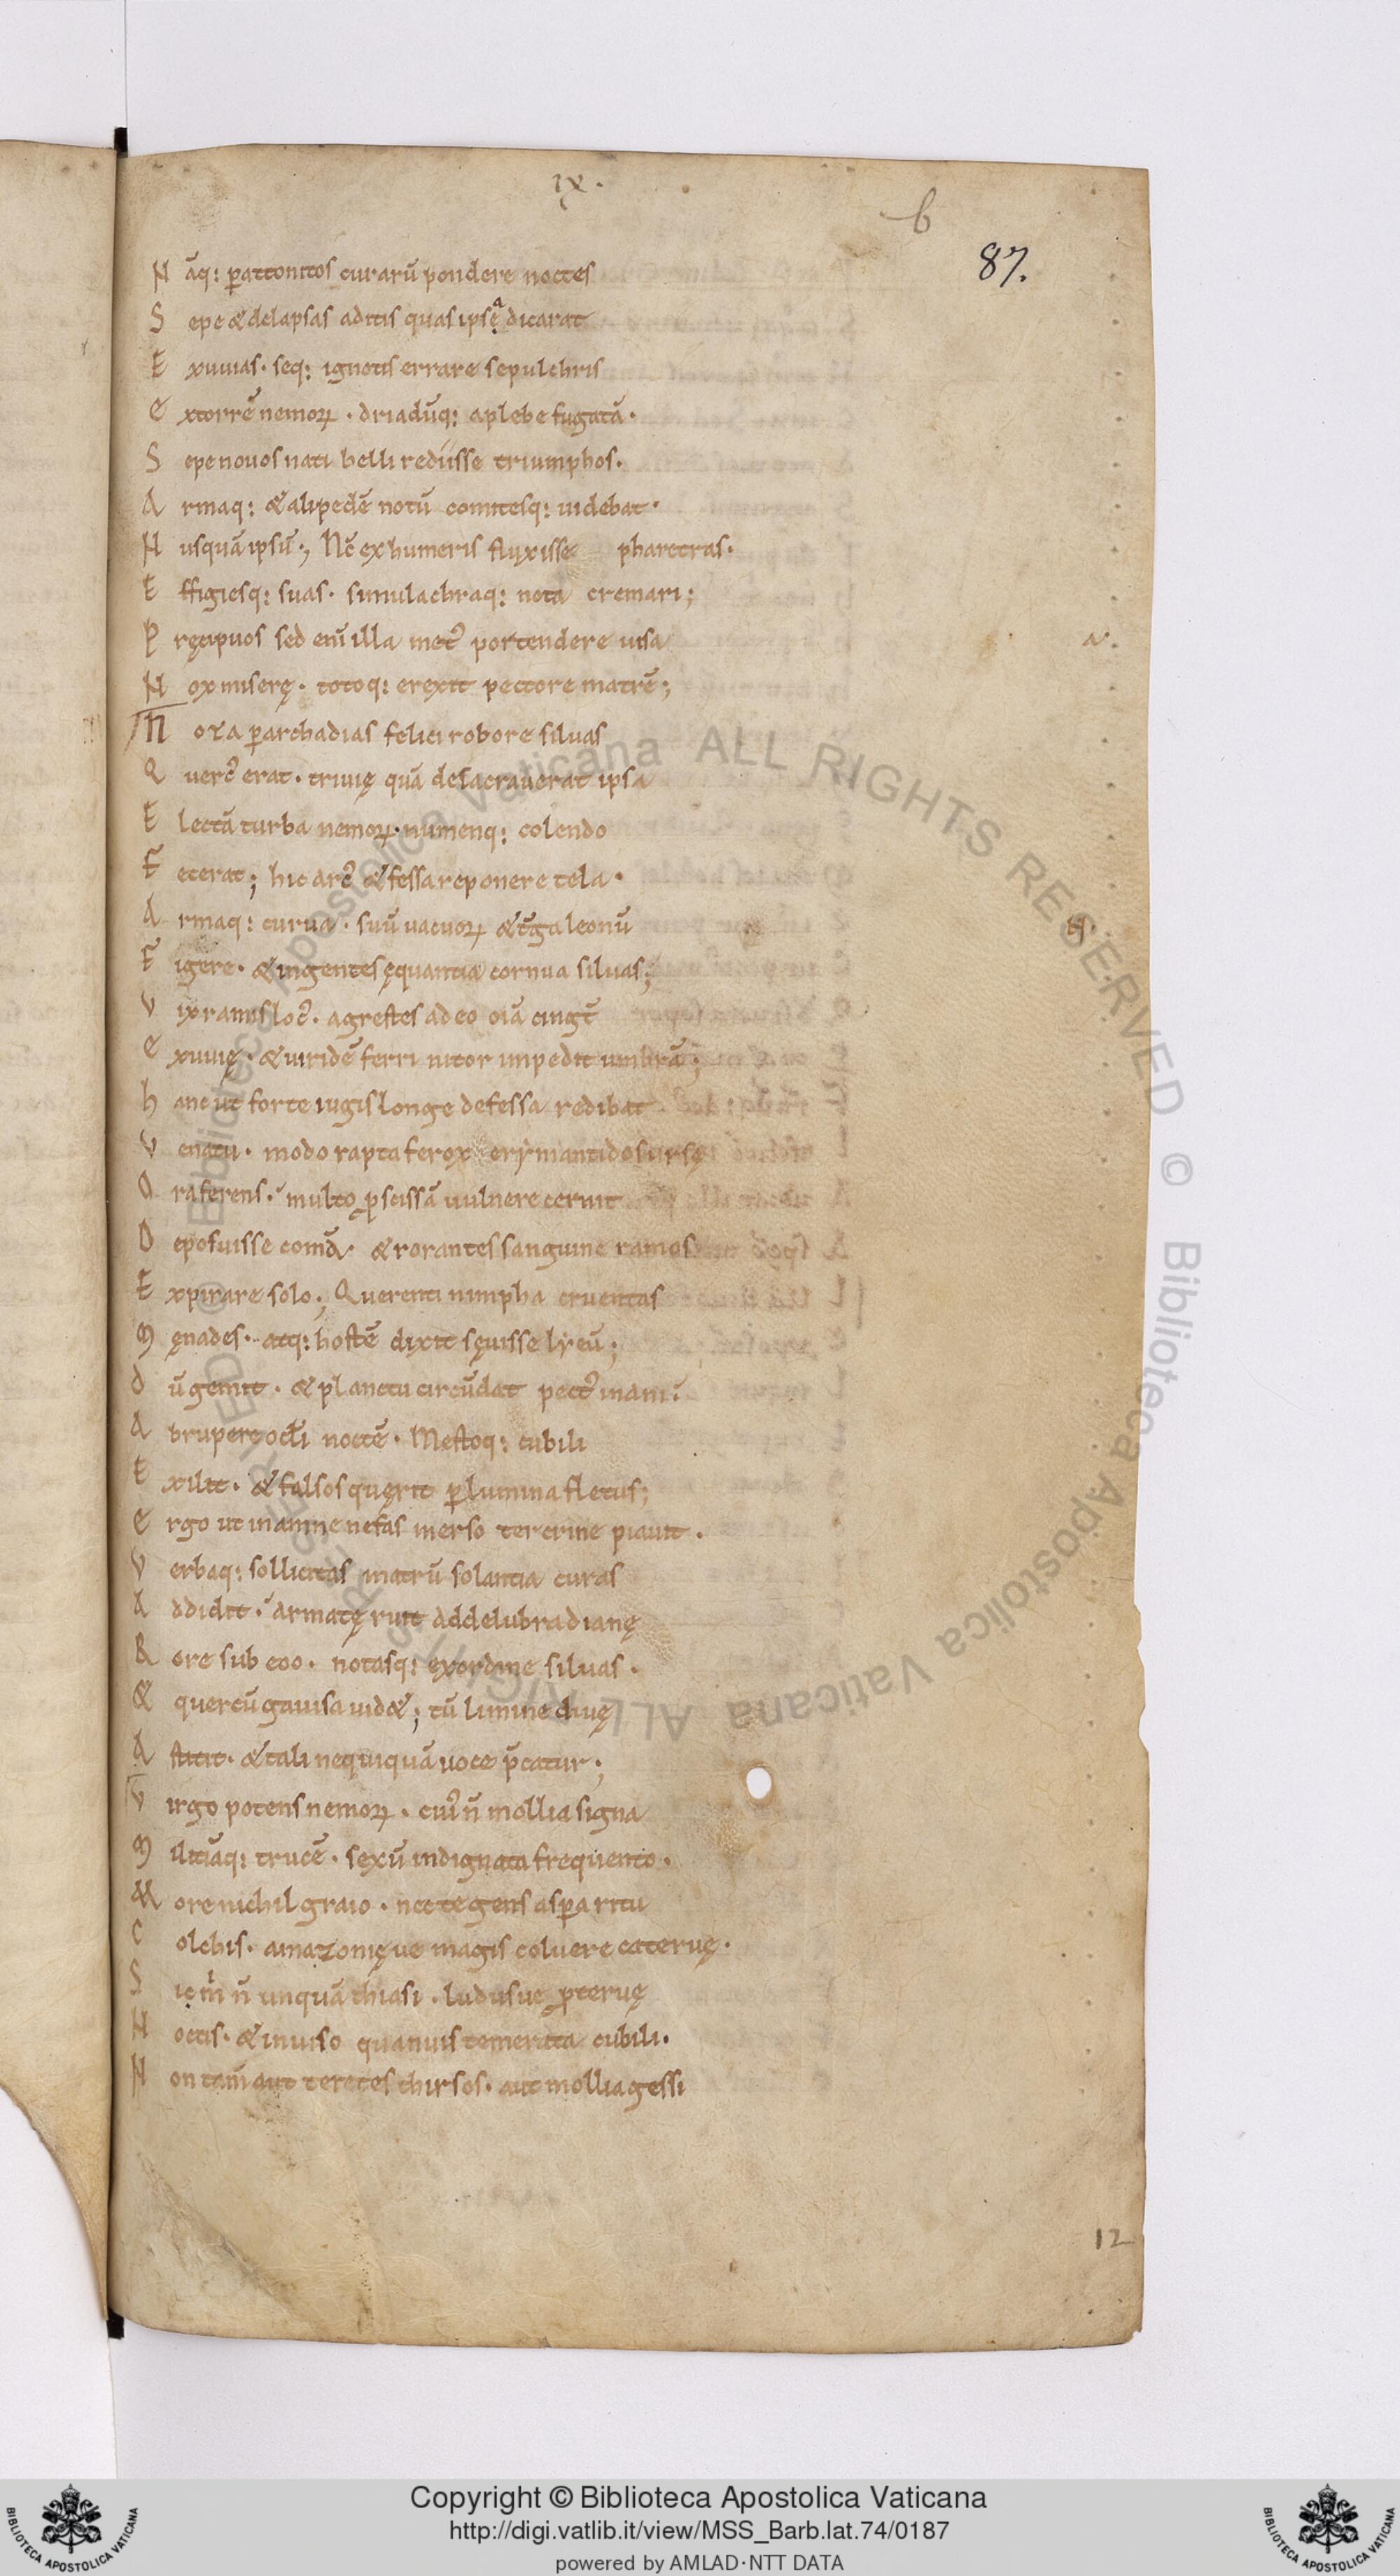 ix.
b
87.
N āq: ꝑattonitos curarū pondere noctes
S epe & delapsas aditis quas ipsę dicarat
a
E xuuias· seq: ignotis errare sepulchris
E xtorrē nemoꝝ · driadūq: aplebe fugatā·
S epe nouos nati belli rediisse triumphos·
A rmaq: & alipedē notū comitesq: uidebat·
N usquā ipsū·; Nc̄ ex humeris fluxisse pharetras·
E ffigiesq: suas· simulachraq: nota cremari;
P ręcipuos sed eni̅ illa met᾽ portendere uisa
N ox miserę· totoq: erexit pectore matrē;
N ota ꝑarchadias felici robore siluas
Q uerc᾽ erat· triuię quā desacrauerat ipsa
E lectā turba nemoꝝ· numenq: colendo
F ecerat; hic arc᾽ & fessa reponere tela·
A rmaq: curua· suū uacuoꝝ & t̄ga leonū
F igere· & ingentes ęquantia cornua siluas;
V ix ramis loc᾽· agrestes adeo oīa cingt̄
E xuuię· & uiridē ferri nitor impedit umbrā;
h anc ut forte iugis longe defessa redibat
V enatu· modo rapta ferox erymantidos ursę
O ra ferens· multo ꝓscissā uulnere cernit
D eposuisse comā· & rorantes sanguine ramos
E xpirare solo; Querenti nimpha cruentas
M ęnades·· atq: hostē dixit sęuisse lyeū;
d ū gemit· & planctu circūdat pect᾽ inani·
A brupere ocl̄i noctē· Mestoq: cubili
E xilit· & falsos quęrit ꝑ lumina fletus;
E rgo ut in amne nefas merso ter crine piauit·
V erbaq: sollicitas matrū solantia curas
A ddidit· armatę ruit ad delubra dianę
R ore sub eoo· notasq: exordine siluas·
& quercū gauisa uid&; tū limine diuę
A stitit· & tali nequiquā uoce p̄catur;
V irgo potens nemoꝝ· cui᾽ n̄ mollia signa
M ilitiāq: trucē· sexū indignata frequento·
M ore nichil graio· nec te gens asꝑa ritu
C olchis· amazonięue magis coluere cateruę·
S i c̣ m̄ n̄ unquā thiasi· ludusue ꝓteruę
N octis· & inuiso quanuis temerata cubili·
N on tam̄ aut teretes thirsos· aut mollia gessi
12
Copyright © Biblioteca Apostolica Vaticana
http://digi.vatlib.it/view/MSS_Barb.lat.74/0187
powered by AMLAD·NTT DATA